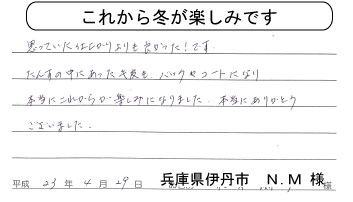 これから冬が楽しみです
思っていたばかりよりも良かった!です.
たんすの中にあった毛皮も、バックやコートになり
本当にこれからが楽しみになりました. 本当にありがとう
ございました.
平成 23 年 4 月 29 日 兵庫県伊丹市 N.M 様 様